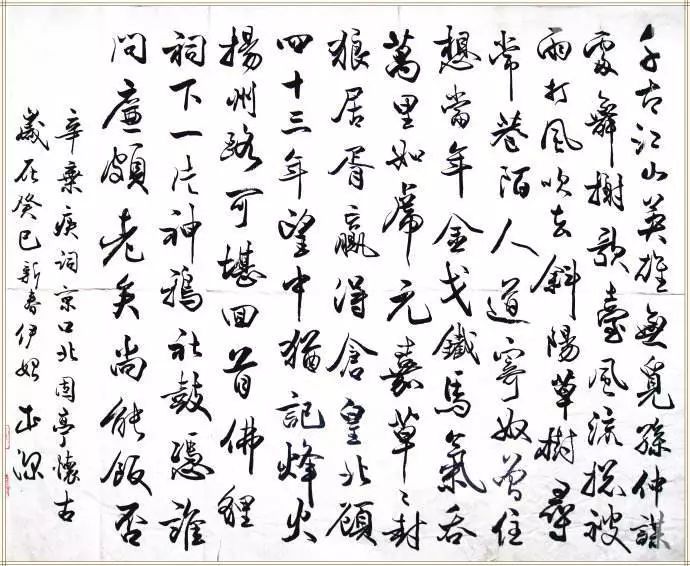 千古江山英雄無覓孫仲謀
處舞榭歌臺風流總被
雨打風吹去斜陽草樹尋
常巷陌人道寄奴曾住
想當年金戈鐵馬氣吞
萬里如虎元嘉草々封
狼居胥贏得倉皇北顧
四十三年望中猶記烽火
揚州路可堪回首佛貍
祠下一片神鴉社鼓憑誰
問廉頗老矣尚能飯否
辛棄疾詞京口北固亭懷古
歲在癸巳新春伊始